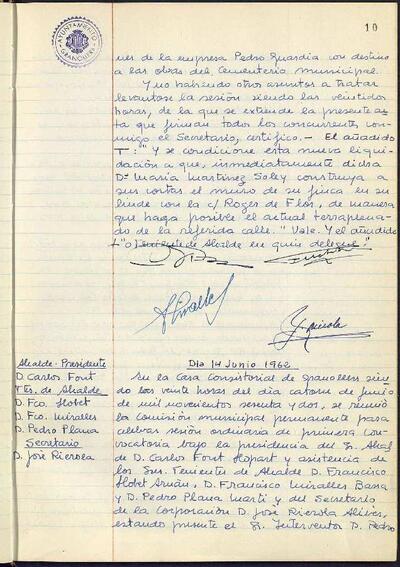 10
AYUNTAMIENTO
GRANOLLERS
nes de la empresa Pedro Guardia con destino
a las obras del Cementerio municipal.
Y no habiendo otros asuntos a tratar
levantose la sesión siendo las veintidos
horas, de la que se extiende la presente ac-
ta que firman todos los concurrentes, con-
migo el Secretario, certifico.- El añadido
T: " Y se condicione esta nueva liqui-
dación a que, inmediatamente dicha
Dª María Martínez Soley construya a
sus costas el muro de su finca en su
linde con la c/ Roger de Flor, de manera
que haga posible el actual terraplena-
do de la referida calle." Vale. Y el añadido
+ "o Teniente de Alcalde en quien delegue."
Dia 14 Junio 1962
Alcalde-Presidente
D. Carlos Font
Ttes. de Alcalde
D. Fco. Llobet
D. Fco. Miralles
D. Pedro Plana
Secretario
D. José Rierola
En la Casa Consistorial de Granollers sien-
do las veinte horas del día catorce de junio
de mil novecientos sesenta y dos, se reunió
la Comisión municipal permanente para
celebrar sesión ordinaria de primera con-
vocatoria bajo la presidencia del Sr. Alcalde
D. Carlos Font Llopart y asistencia de
los Sres. Tenientes de Alcalde D. Francisco
Llobet Arnán, D. Francisco Miralles Bassa
y D. Pedro Plana Martí y del Secretario
de la Corporación D. José Rierola
estando presente el Sr. Interventor D. Pedro